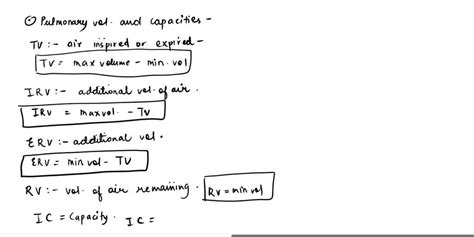 ⊙ Pulmonary vol. and capacities -
TV :- air inspired or expired -
TV = max volume - min. vol
IRV :- additional vol. of air.
IRV = max vol. - TV
ERV :- additional vol.
ERV = min vol - TV
RV :- vol. of air remaining. RV = min vol
IC = Capacity. IC =